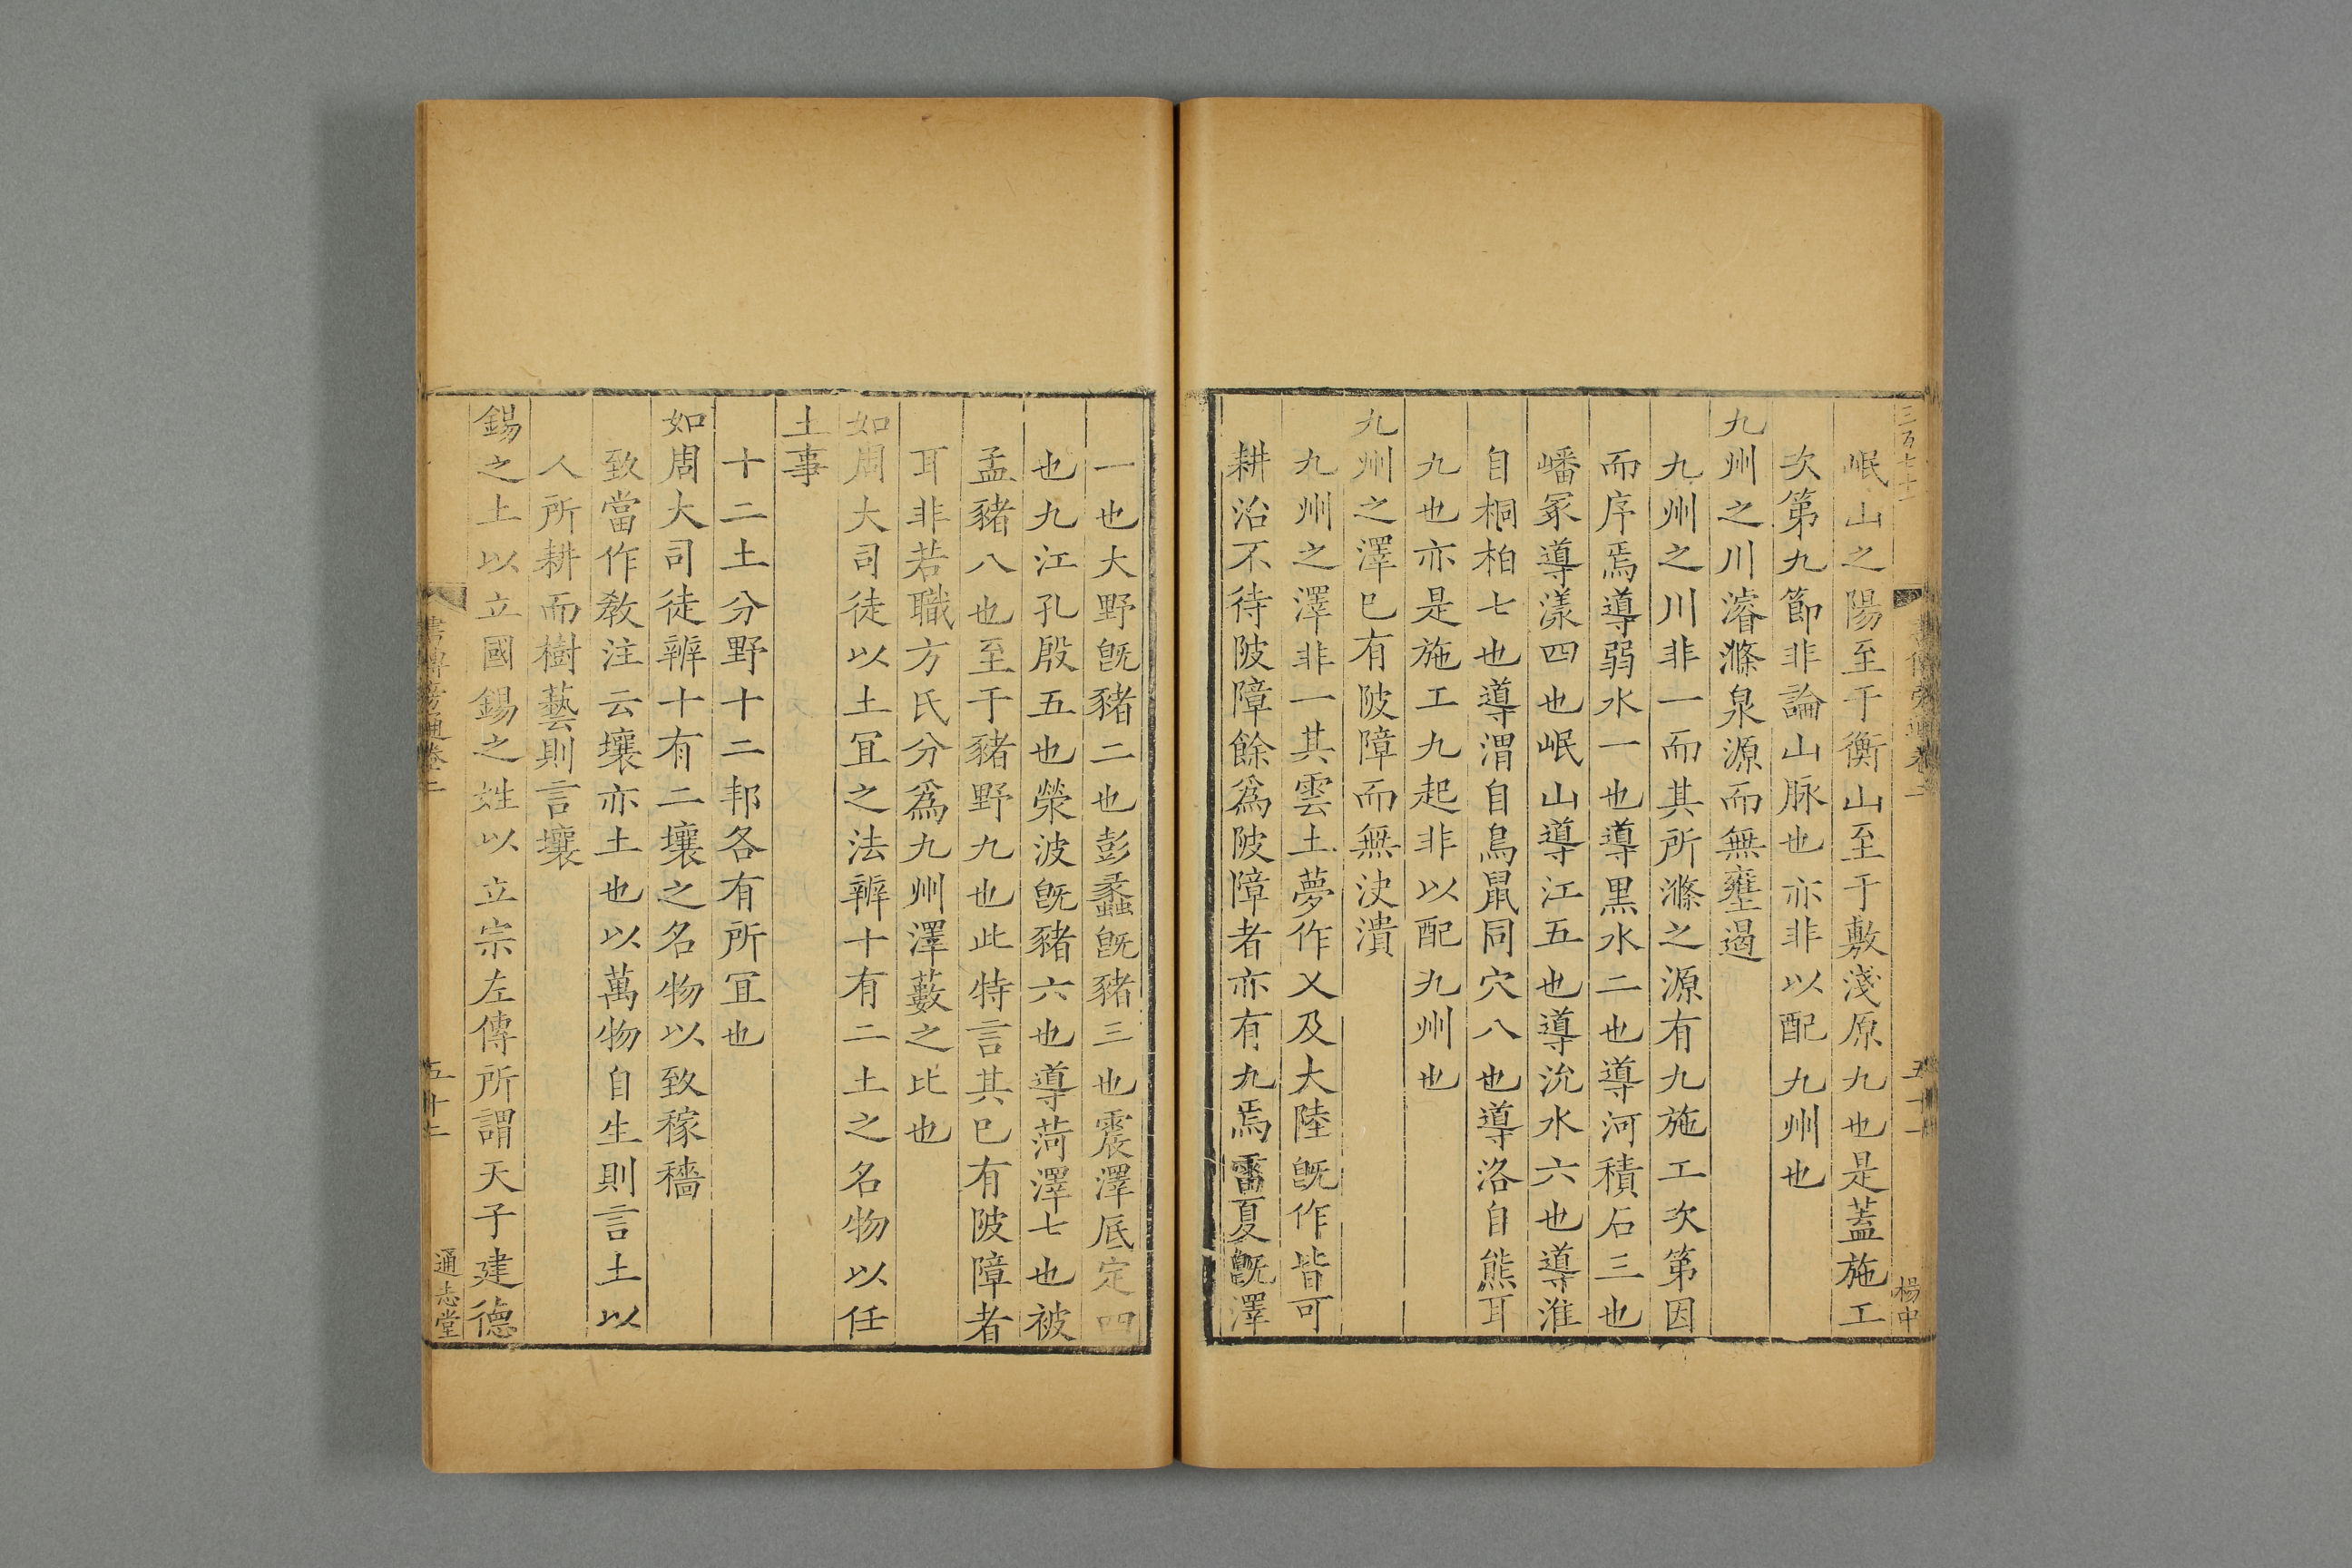 岷山之陽至于衡山至于敷淺原九也是蓋施工
次第九節非論山脉也亦非以配九州也
九州之川濬滌泉源而無壅遏
九州之川非一而其所滌之源有九施工次第因
而序焉導弱水一也導黑水二也導河積石三也
嶓冢導漾四也岷山導江五也導沇水六也導淮
自桐柏七也導渭自鳥鼠同穴八也導洛自熊耳
九也亦是施工九起非以配九州也
九州之澤已有陂障而無決潰
九州之澤非一其雲土夢作乂及大陸既作皆可
耕治不待陂障餘爲陂障者亦有九焉雷夏既澤
一也大野既豬二也彭蠡既豬三也震澤厎定四
也九江孔殷五也滎波既豬六也導菏澤七也被
孟豬八也至于豬野九也此特言其已有陂障者
耳非若職方氏分爲九州澤藪之比也
如周大司徒以土宜之法辨十有二土之名物以任
土事
十二土分野十二邦各有所宜也
如周大司徒辨十有二壤之名物以致稼穡
致當作敎注云壤亦土也以萬物自生則言土以
人所耕而樹藝則言壤
錫之土以立國錫之姓以立宗左傳所謂天子建德
書傳旁通卷二
五十二
通志堂
楊中